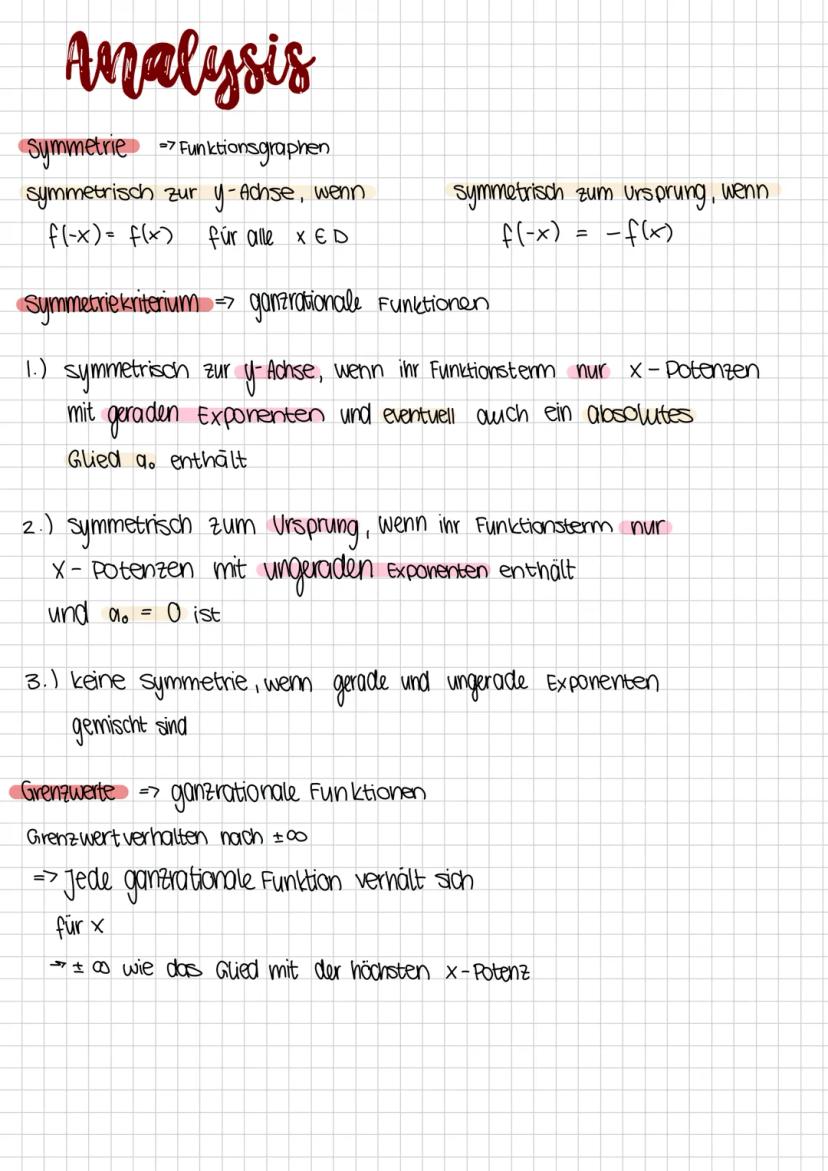 Analysis
Symmetrie => Funktionsgraphen
symmetrisch zur y-Achse, wenn
symmetrisch zum Ursprung, wenn
f(-x) = f(x) für alle x ∈ D
f(-x) = -f(x)
Symmetriekriterium => ganzrationale Funktionen
1.) symmetrisch zur y-Achse, wenn ihr Funktionsterm nur x-Potenzen
mit geraden Exponenten und eventuell auch ein absolutes
Glied a₀ enthält
2.) symmetrisch zum Ursprung, wenn ihr Funktionsterm nur
x-Potenzen mit ungeraden Exponenten enthält
und a₀ = 0 ist
3.) keine Symmetrie, wenn gerade und ungerade Exponenten
gemischt sind
Grenzwerte => ganzrationale Funktionen
Grenzwertverhalten nach ±∞
=> Jede ganzrationale Funktion verhält sich
für x
→ ±∞ wie das Glied mit der höchsten x-Potenz